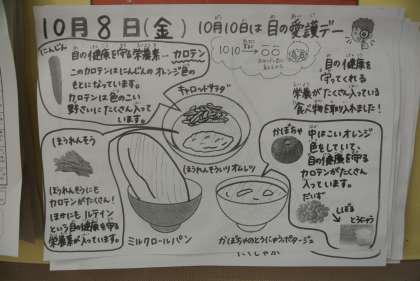 10月8日(金)
10月10日は 目の愛護デー
にんじん
目の健康を守る栄養素… カロテン
このカロテンはにんじんのオレンジ色の
もとになっています。
カロテンは色のこい
野さいにたくさん入って
います。
10 10
目の健康を
守ってくれる
栄養がたくさん入っている
食べ物を取り入れました!
キャロットサラダ
ほうれんそう
ほうれんそうにも
カロテンがたくさん!
ほかにも ルテイン
という目の健康を守る
栄養素が入っています。
ほうれんそういりオムレツ
ミルクロールパン
かぼちゃのとうにゅうポタージュ
かぼちゃ
中はこいオレンジ
色をしていて、
目の健康を守る
カロテンがたくさん
入っています。
だいず
しぼる
とうにゅう